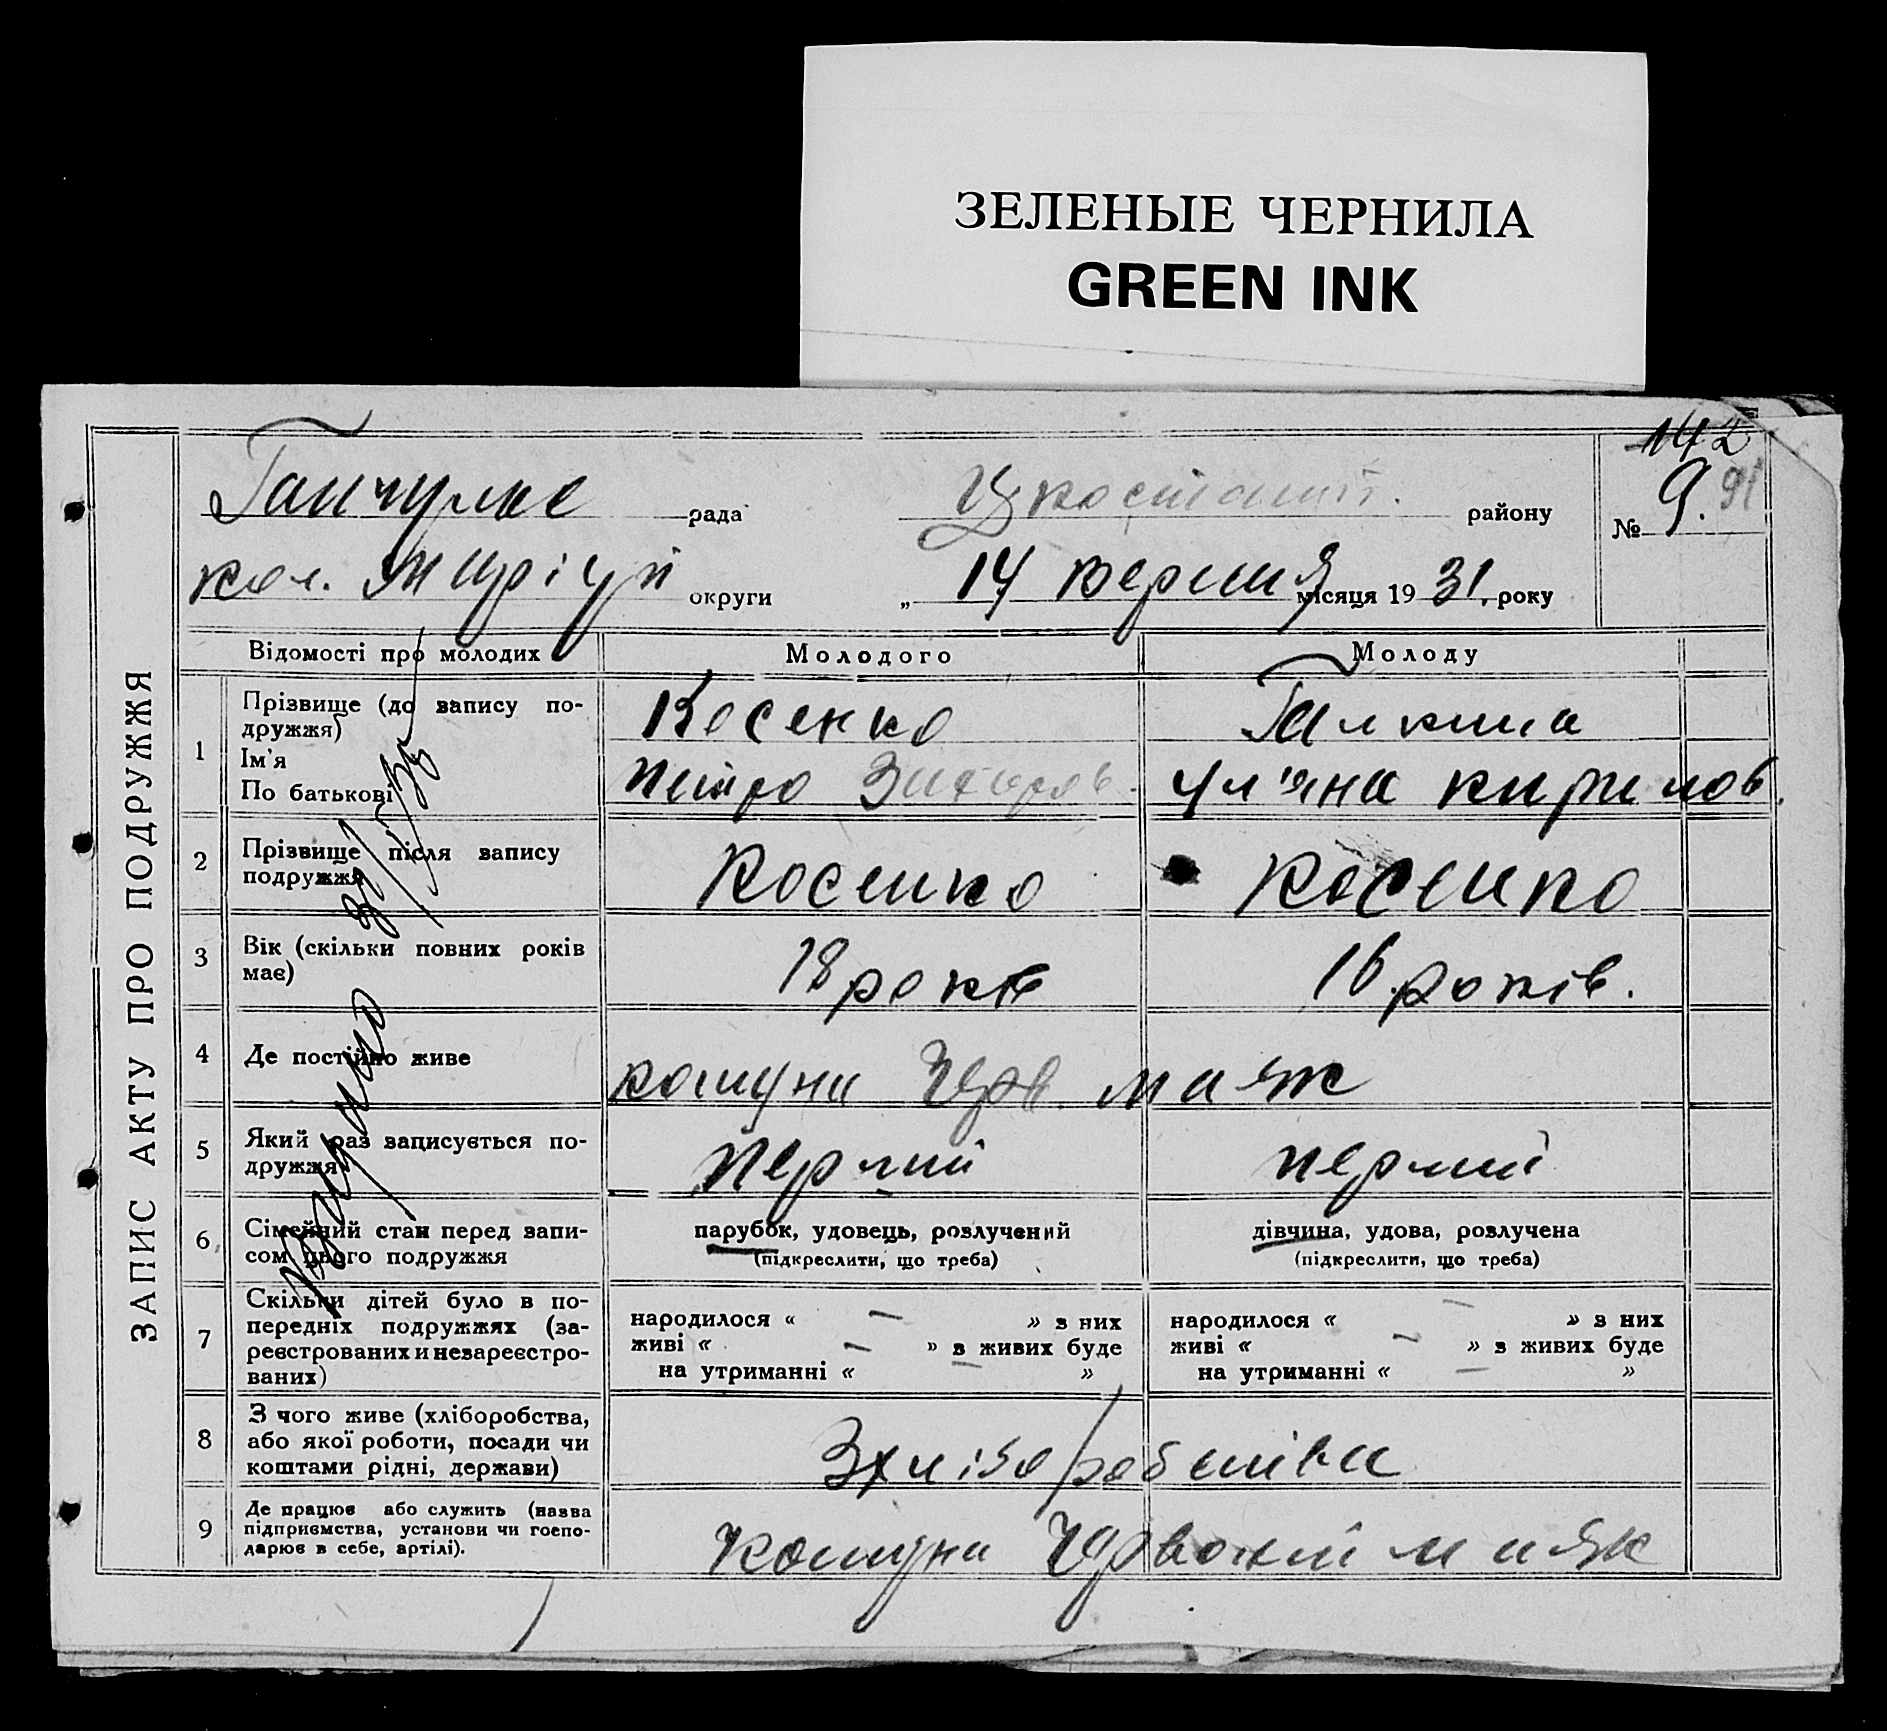 ЗЕЛЕНЫЕ ЧЕРНИЛА
GREEN INK
142
рада району № 9. 91
округи „ 14 Версня місяця 19 31. року
ЗАПИС АКТУ ПРО ПОДРУЖЖЯ
Відомості про молодих Молодого Молоду
1 Прізвище (до запису по-
дружжя)
Косенко
Ім'я
По батькові
Петро Захаров. Ул'яна Кирилов.
2 Прізвище після запису
подружжя
Косенко Косенко
3 Вік (скільки повних років
має)
18 років 16 років.
4 Де постійно живе
комуна Черв. маяк
5 Який раз записується по-
дружжя
перший перший
6 Сімейний стан перед запи-
сом цього подружжя
парубок, удовець, розлучений дівчина, удова, розлучена
(підкреслити, що треба) (підкреслити, що треба)
7 Скільки дітей було в по-
передніх подружжях (за-
реєстрованих и незареєстро-
ваних)
народилося « — » з них народилося « — » з них
живі « — » з живих буде живі « — » з живих буде
на утриманні « — » на утриманні « — »
8 З чого живе (хліборобства,
або якої роботи, посади чи
коштами рідні, держави)
З хліборобства
9 Де працює або служить (назва
підприємства, установи чи госпо-
дарює в себе, артілі).
комуна Червоний маяк